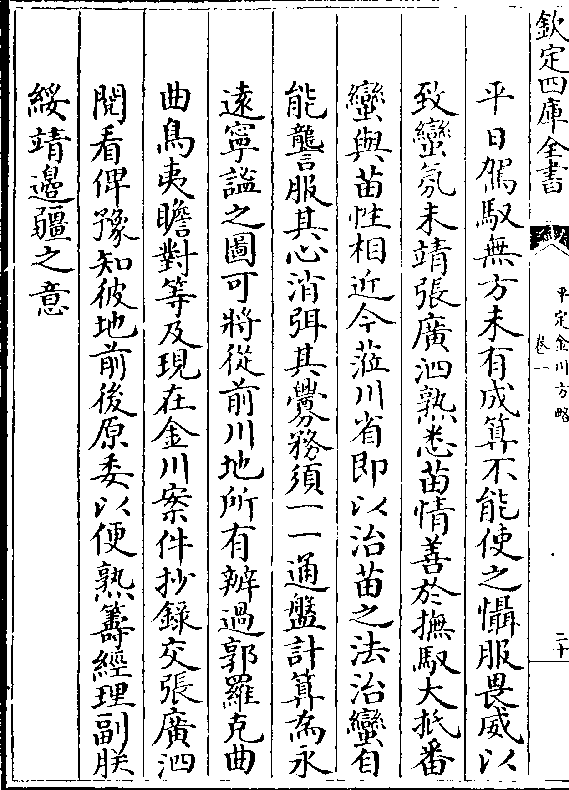 欽定四庫全書
平定金川方略
卷一
二十
平日駕馭無方未有成算不能使之懾服畏威以
致蠻氛未靖張廣泗熟悉苗情善於撫馭大抵番
蠻與苗性相近今蒞川省即以治苗之法治蠻自
能讋服其心消弭其釁務須一一通盤計算為永
遠寧謐之圖可將從前川地所有辦過郭羅克曲
曲烏夷瞻對等及現在金川案件抄錄交張廣泗
閱看俾豫知彼地前後原委以便熟籌經理副朕
綏靖邊疆之意